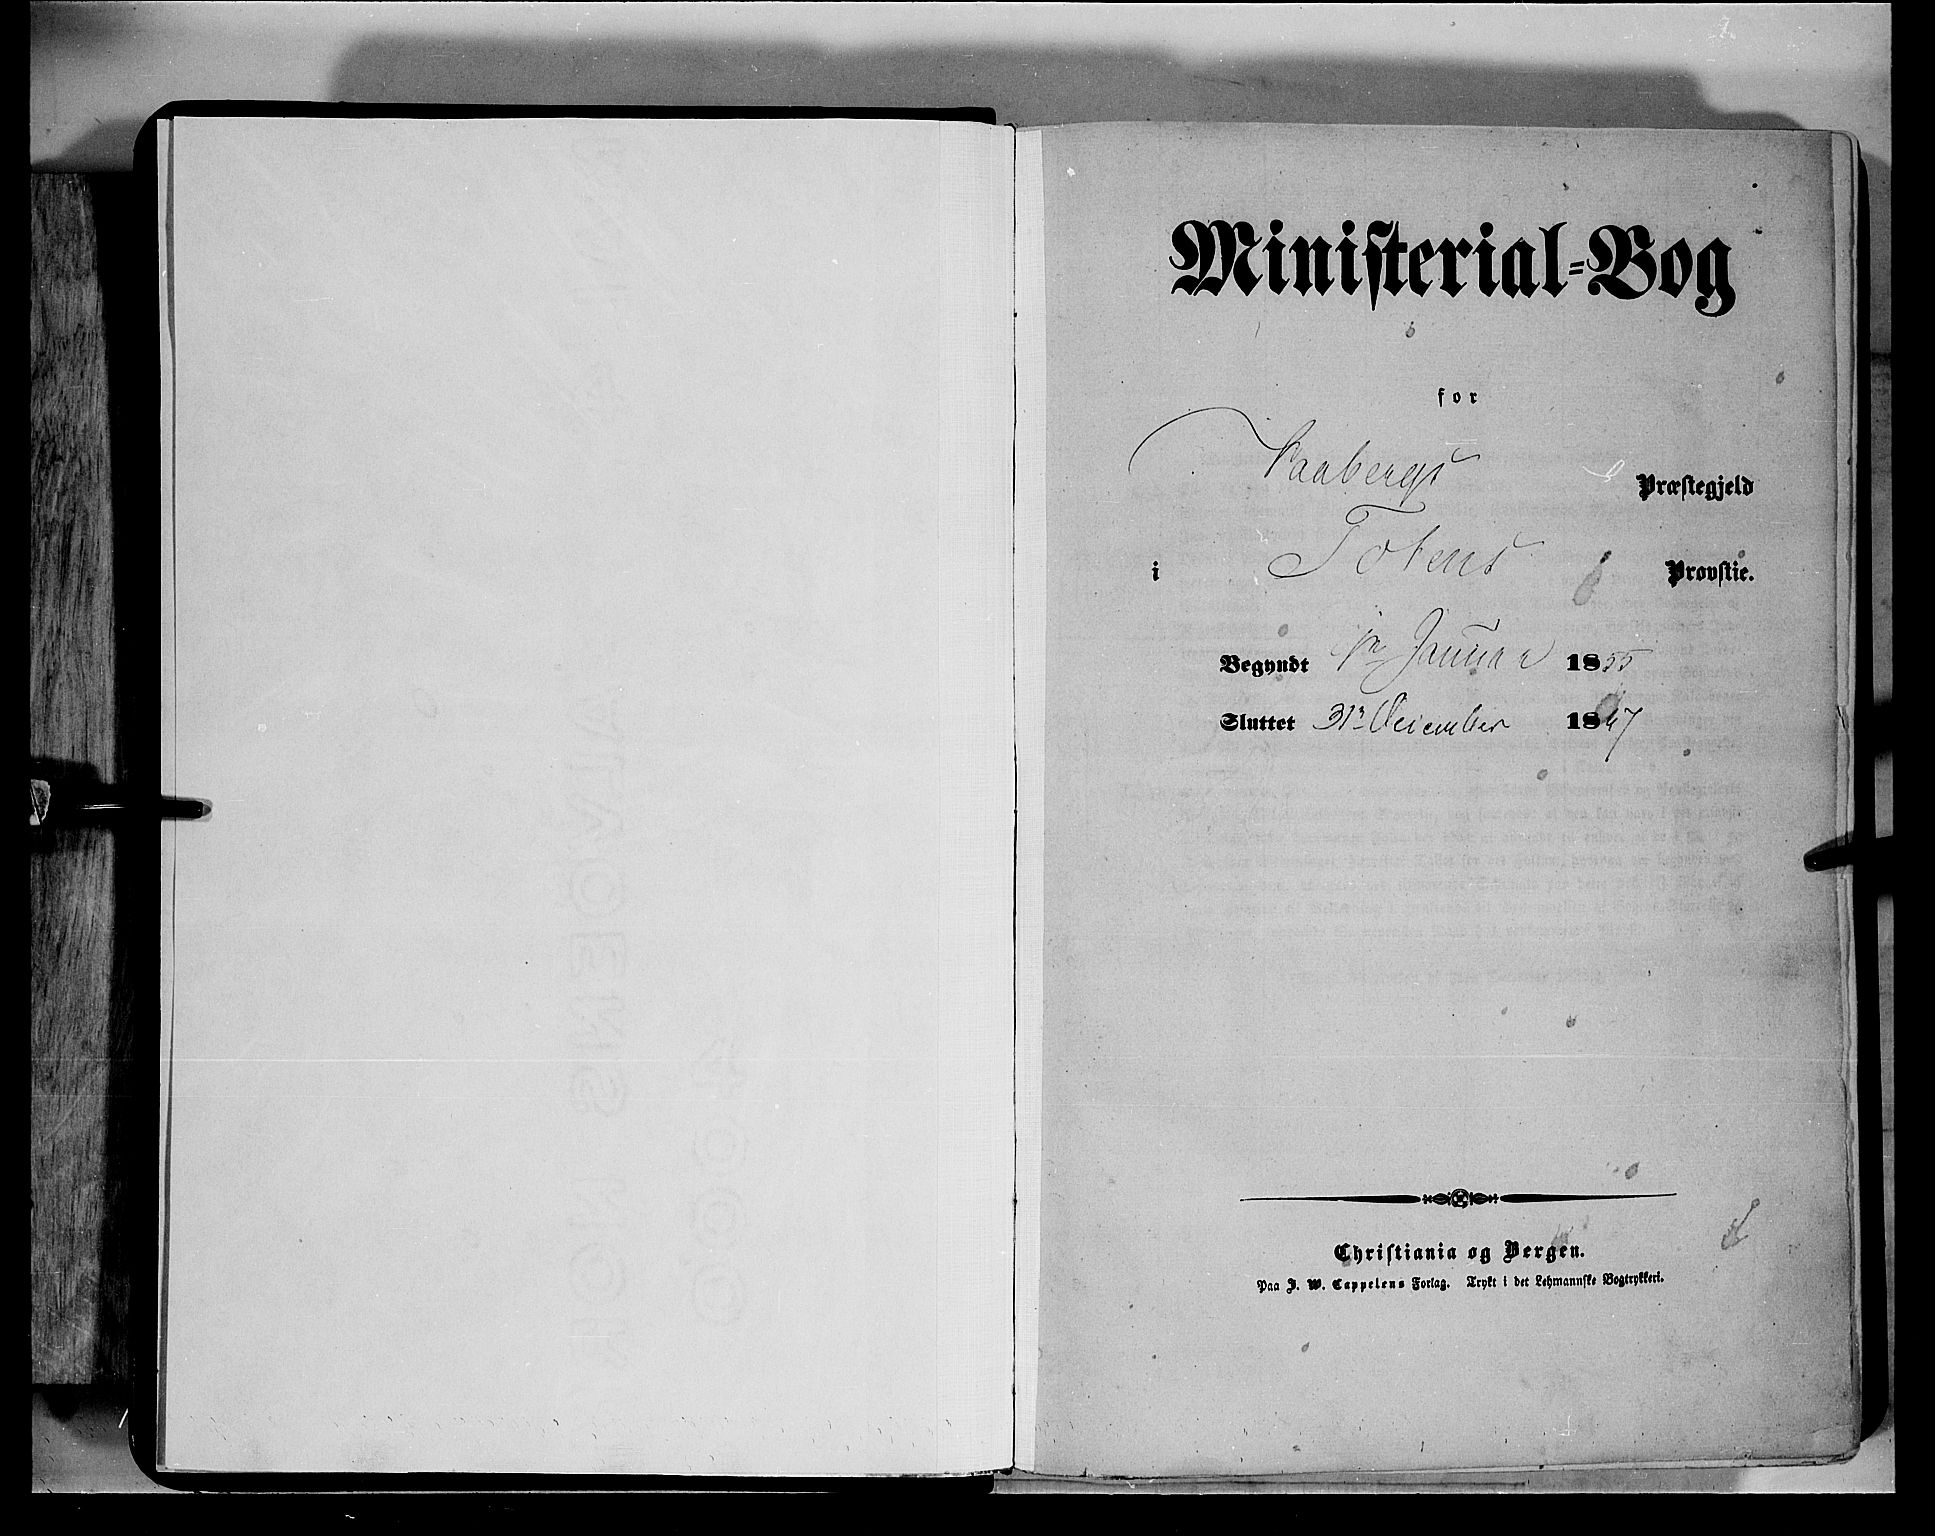 Ministerial-Bog
for
Faabergs Præstegjeld
i Totens Provstie.
Begyndt 1ste Januar 1855
Sluttet 31te December 18
Christiania og Bergen.
Paa J. W. Cappelens Forlag. Trykt i det Lehmannske Bogtrykkeri.